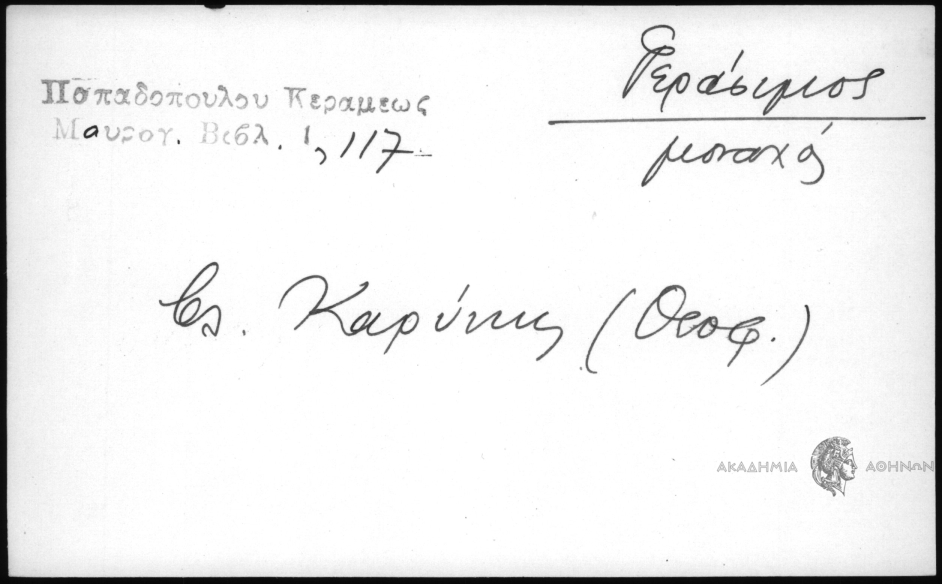 Παπαδοπουλου Κεραμεως
Μαυρογ. Βιβλ. 1, 117
Γεράσιμος
μοναχός
Βλ. Καρύκης (Θεοφ.)
ΑΚΑΔΗΜΙΑ ΑΘΗΝΩΝ